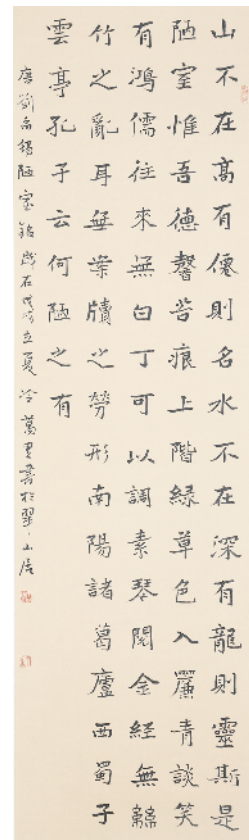 山不在高有僊則名水不在深有龍則靈斯是
陋室惟吾德馨苔痕上階緑草色入簾青談笑
有鴻儒往來無白丁可以調素琴閱金經無絲
竹之亂耳無案牘之勞形南陽諸葛廬西蜀子
雲亭孔子云何陋之有
唐劉禹錫陋室銘歲在戊戌立夏冷萬里書於翠山居